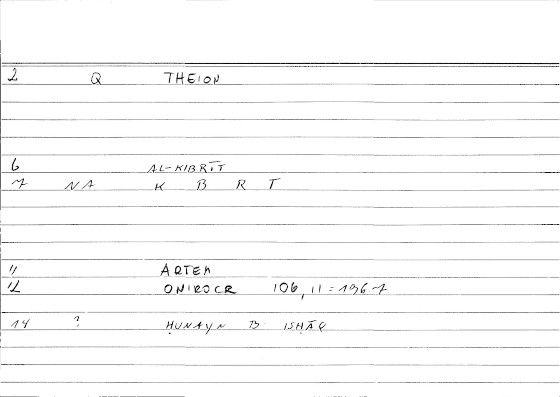 2 Q THEION
6 AL-KIBRĪT
7 NA K B R T
11 ARTEM
12 ONIROCR 106, 11 = 196 7
14 ? ḤUNAYN B ISḤĀQ